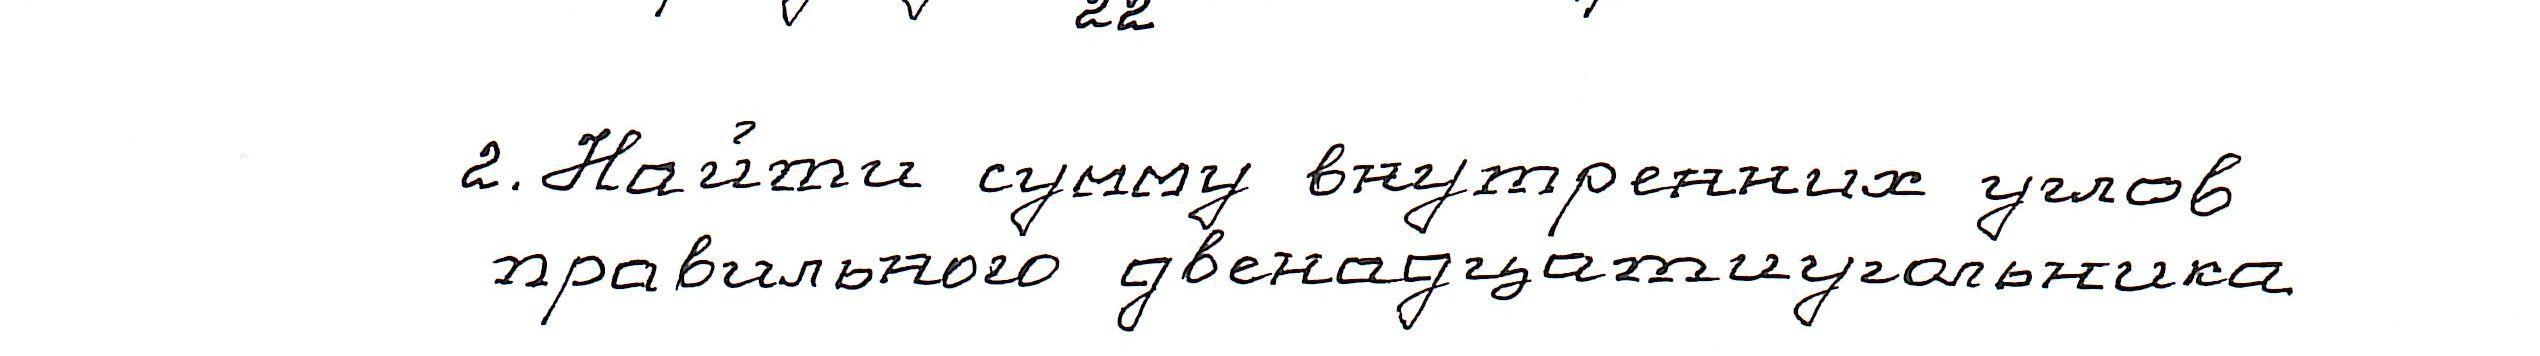 22
2. Найти сумму внутренних углов
правильного двенадцатиугольника